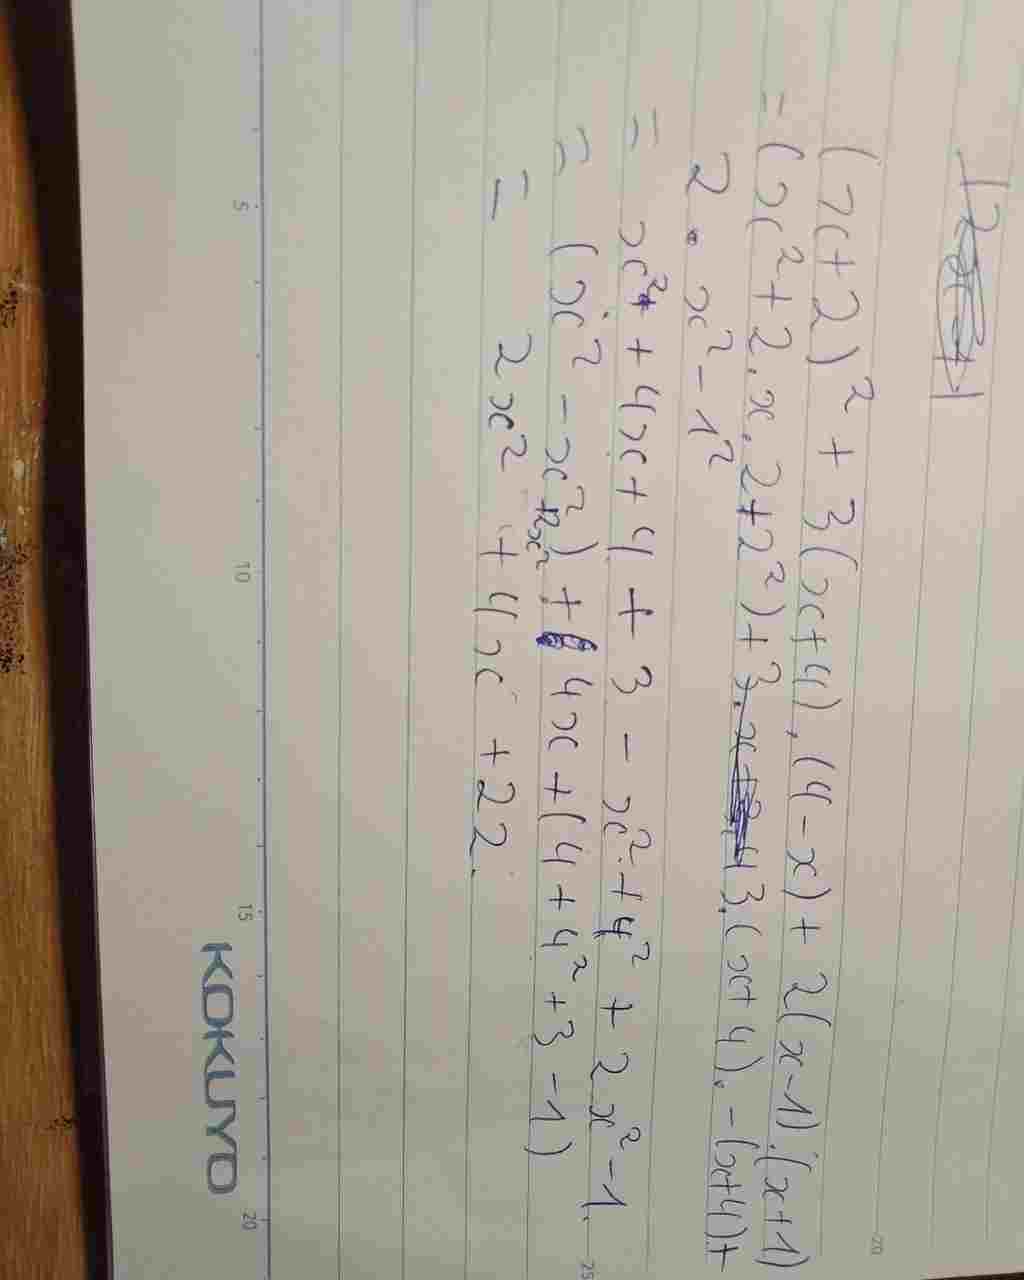 (x+2)² + 3(x+4).(4-x) + 2(x-1).(x+1)
= (x²+2.x.2+2²)+3.(x+4).-(x+4)+
2.x²-1²
= x² + 4x + 4 + 3 - x² + 4² + 2x² - 1.
= (x² - x² + 2x²) + 4x + (4 + 4² + 3 - 1)
= 2x² + 4x + 22.
5
10
15
20
20
25
KOKUYO